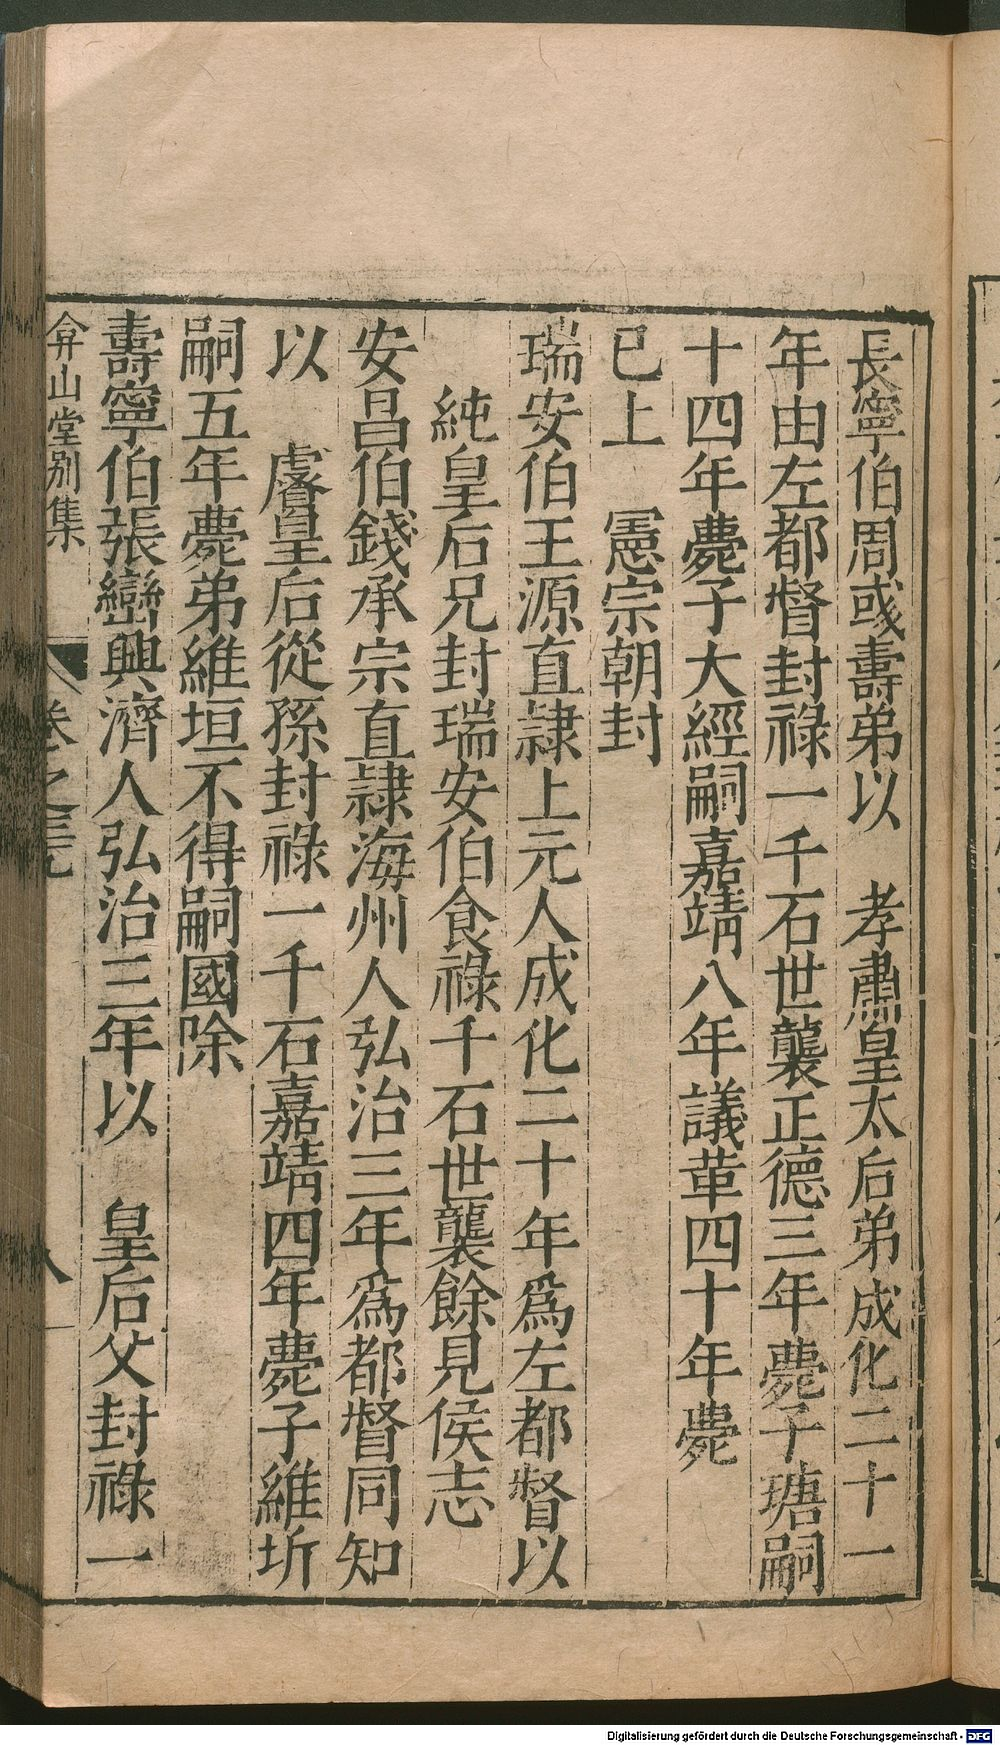 長寧伯周彧壽弟以　孝肅皇太后弟成化二十一
年由左都督封祿一千石世襲正德三年薨子瑭嗣
十四年薨子大經嗣嘉靖八年議革四十年薨
已上　憲宗朝封
瑞安伯王源直隷上元人成化二十年爲左都督以
純皇后兄封瑞安伯食祿千石世襲餘見侯志
安昌伯錢承宗直隷海州人弘治三年爲都督同知
以　睿皇后從孫封祿一千石嘉靖四年薨子維圻
嗣五年薨弟維垣不得嗣國除
壽寧伯張巒興濟人弘治三年以　皇后父封祿一
弇山堂别集　卷之三九　八
Digitalisierung gefördert durch die Deutsche Forschungsgemeinschaft - DFG